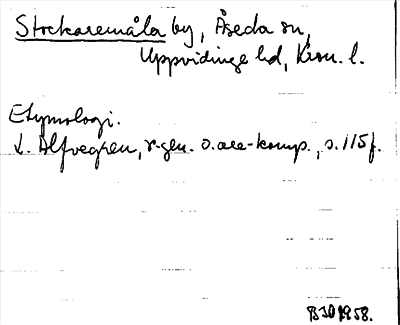 Stockaremåla by, Åseda sn,
Uppvidinge hd, Kron. l.
Etymologi.
L. Alfvegren, r-gen. o. are-komp., s. 115 f.
1958.